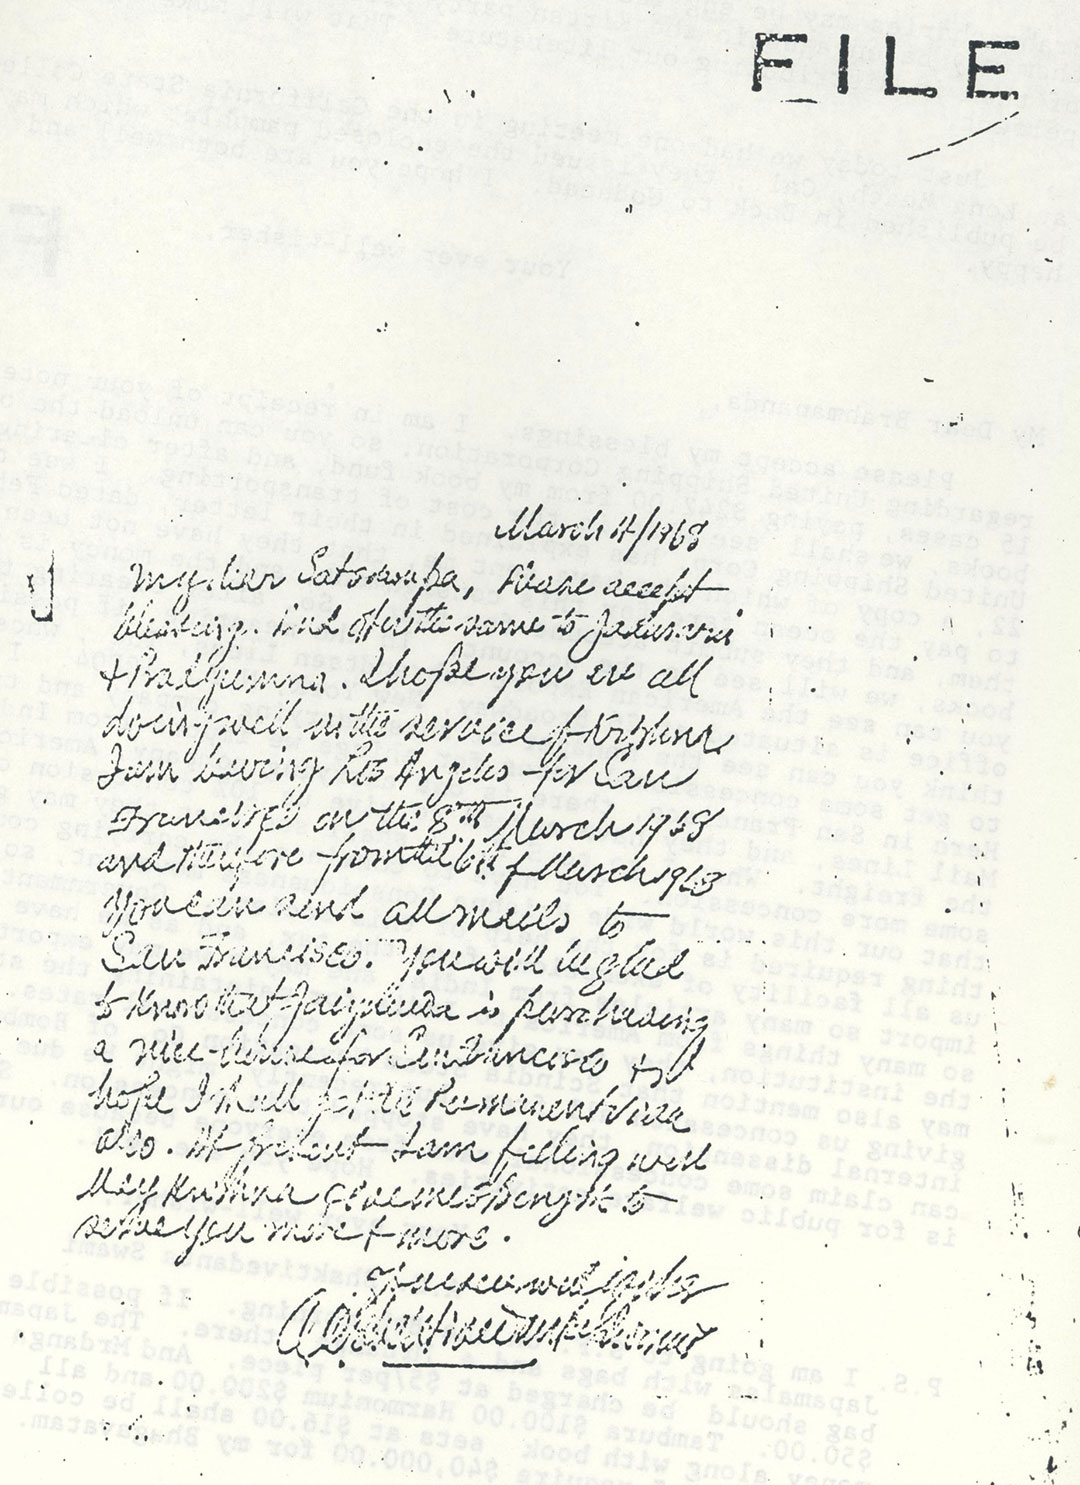 FILE
March 4/1968
My dear Satsvarupa, Please accept
blessing. And offer the same to Jadurani
+ Pradyumna. I hope you are all
doing well in the service of Krishna
I am leaving Los Angeles for San
Francisco on the 8th March 1968
and therefore from the 6th of March 1968
you can send all mails to
San Francisco. You will be glad
to know that Jaigovinda is purchasing
a nice house for San Francisco + I
hope I shall get the Permanent Visa
also. At present I am feeling well
May Krishna give me strength to
serve you more + more.
Your ever well wisher
A.C. Bhaktivedanta Swami